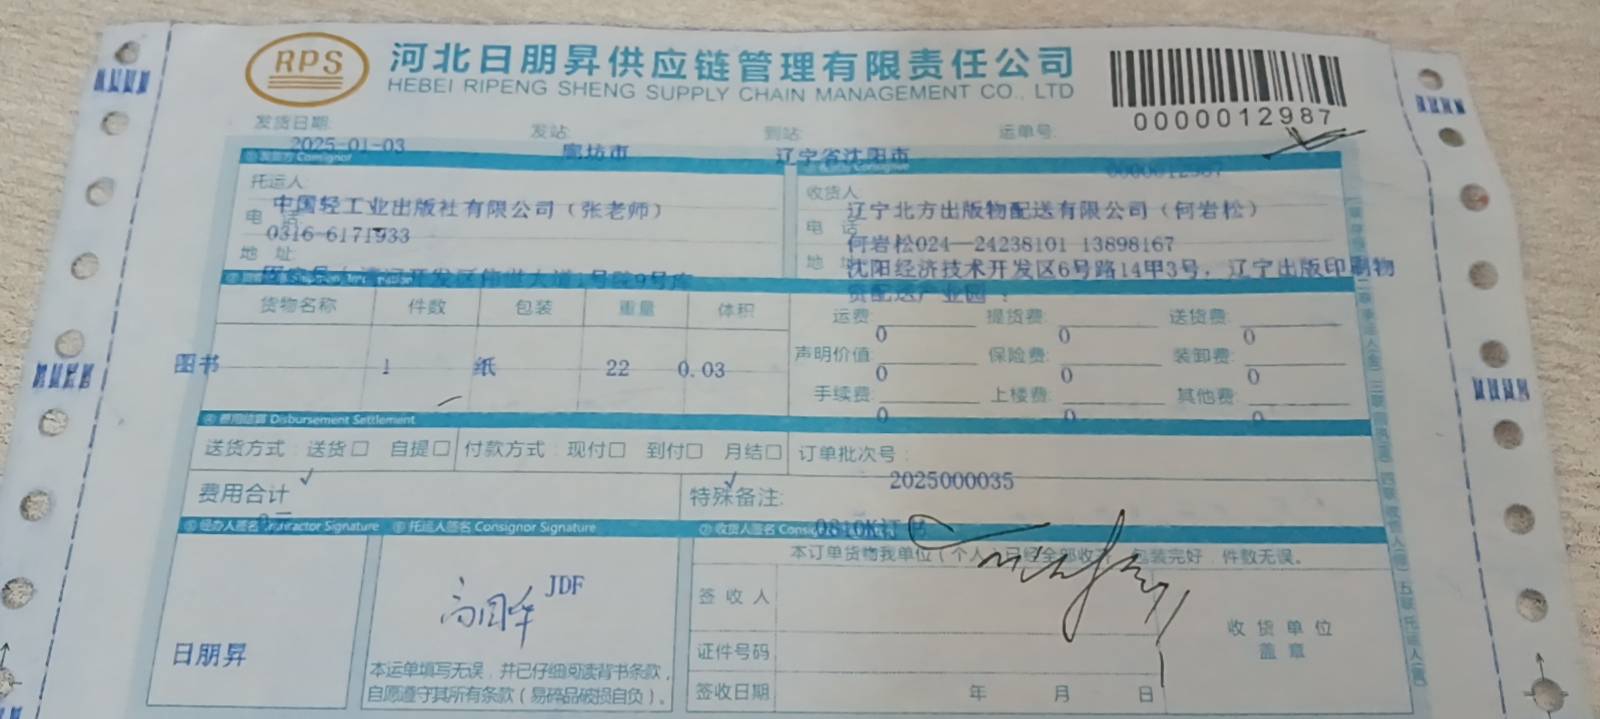 RPS
河北日朋昇供应链管理有限责任公司
HEBEI RIPENG SHENG SUPPLY CHAIN MANAGEMENT CO., LTD
0000012987
发货日期: 发站: 到站: 运单号:
2025-01-03 廊坊市 辽宁省沈阳市 0000012987
①发货方 Consignor
托运人 收货人
中国轻工业出版社有限公司（张老师） 辽宁北方出版物配送有限公司（何岩松）
电 话: 电 话
0316-6171933 何岩松024—24238101 13898167
地 址: 地 址
沈阳经济技术开发区6号路14甲3号, 辽宁出版印刷物
开发区 大道1号院9号库 资配送产业园 :
货物名称 件数 包装 重量 体积 运费: 提货费: 送货费:
0 0 0
图书 1 纸 22 0.03 声明价值: 保险费: 装卸费:
0 0 0
手续费: 上楼费: 其他费:
0 0 0
④费用结算 Disbursement Settlement
送货方式: 送货□ 自提□ 付款方式: 现付□ 到付□ 月结□ 订单批次号:
2025000035
费用合计 特殊备注:
⑤经办人签名 Contractor Signature ⑥托运人签名 Consignor Signature ⑦收货人签名
本订单货物我单位(个人)已经全部收 包装完好, 件数无误。
JDF
签 收 人
日朋昇
收 货 单 位
盖 章
证件号码
本运单填写无误, 并已仔细阅读背书条款,
自愿遵守其所有条款(易碎品破损自负)。
签收日期 年 月 日